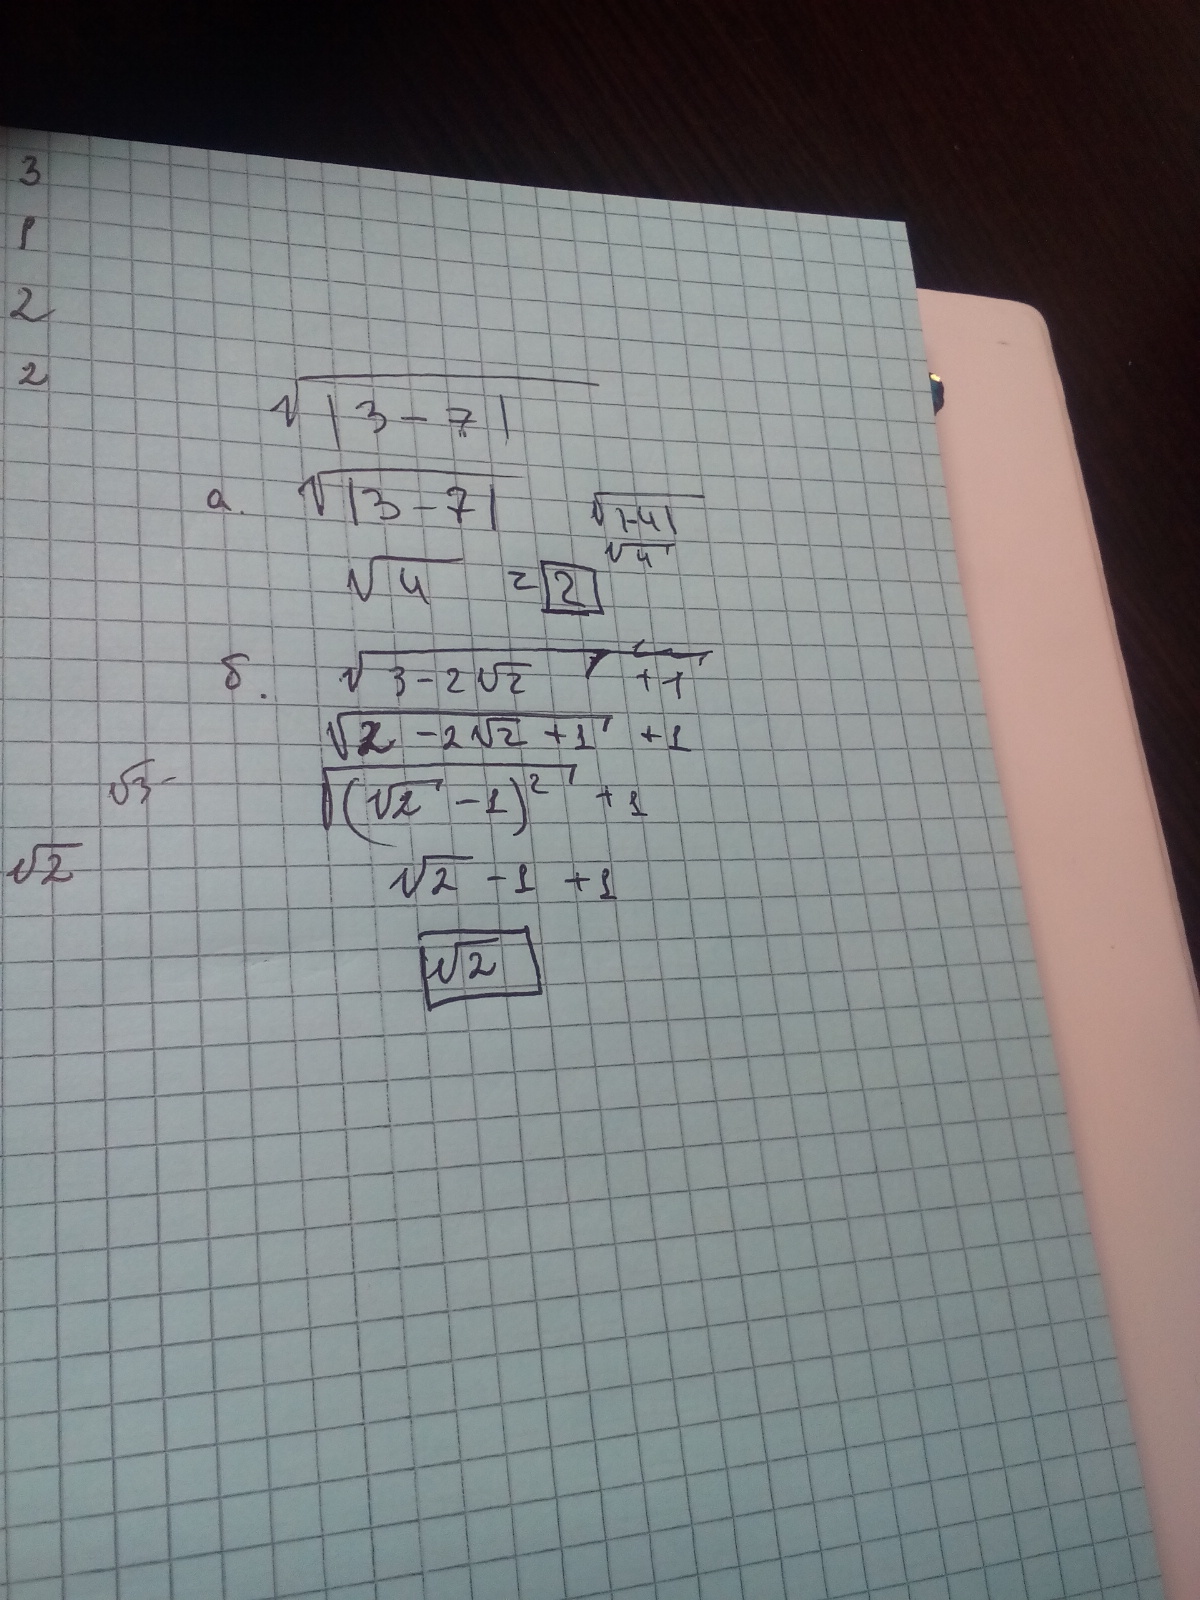 3
1
2
2
√|3-7|
а. √|3-7| √|-4|
√4
√4 = 2
б. √3-2√2 +1
√2-2√2+1 +1
√3-
√(√2-1)² +1
√2
√2 -1 +1
√2